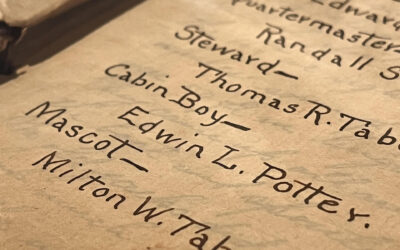 Edward
Quartermaster—
Randall S
Steward—
Thomas R. Tab
Cabin Boy—
Edwin L. Potter.
Mascot—
Milton W. Tab